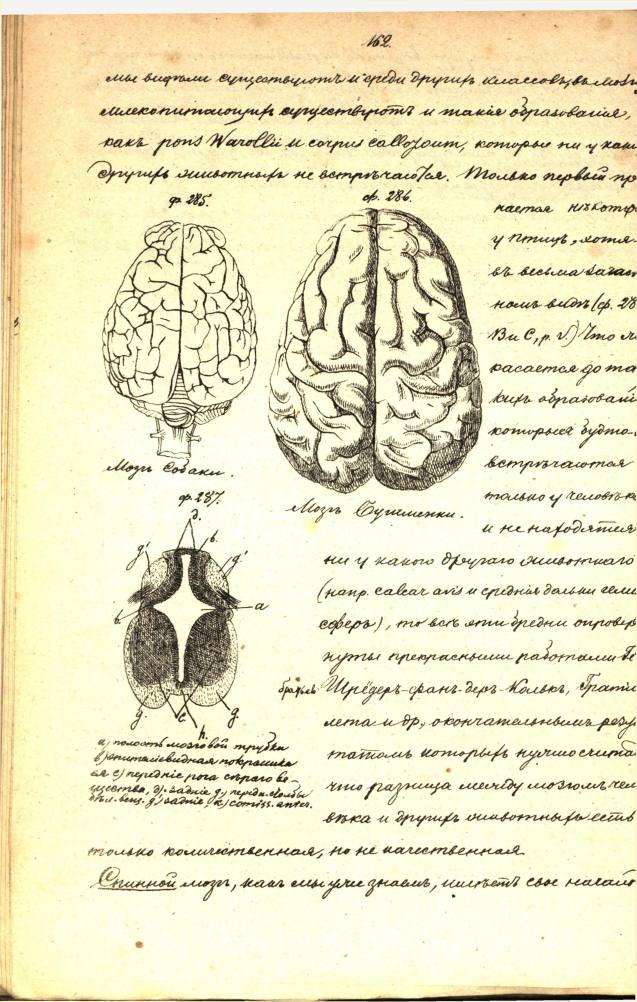 162.
мы видѣли существуютъ и среди другихъ классовъ, въ мозгу
млекопитающихъ существуютъ и такія образованія,
какъ pons Warollii и corpus callosum, которые ни у каки
другихъ животныхъ не встрѣчаются. Только первый пр
ф. 285.
ф. 286.
чается нѣкотор
у птицъ, хотя
въ весьма зачат
номъ видѣ (ф. 28
B и C, p. v.) Что
касается до та
кихъ образовані
которыя будто
встрѣчаются
только у человѣка
и не находятся
Мозгъ Собаки.
Мозгъ Бушменки.
ф. 287.
d.
b.
g'
g'
b
a
g.
c.
g
h.
ни у какого другаго животнаго
(напр. calcar avis и средніе дольки геми
сферъ), то всѣ эти бредни опровер
нуты прекрасными работами
братьевъ Шрёдеръ-фанъ-деръ-Колькъ, Грати
лета и др., окончательнымъ резу
татомъ которыхъ нужно счита
что разница между мозгомъ чел
вѣка и другихъ животныхъ есть
a) полость мозговой трубки
b) эпителевидная покрышка
ея c) передніе рога сѣраго ве-
щества, d) задніе g) передн. столбы
бѣл. вещ. g') задніе, k) comiss. anter.
только количественная, но не качественная
Спинной мозгъ, какъ мы уже знаемъ, имѣетъ свое начало